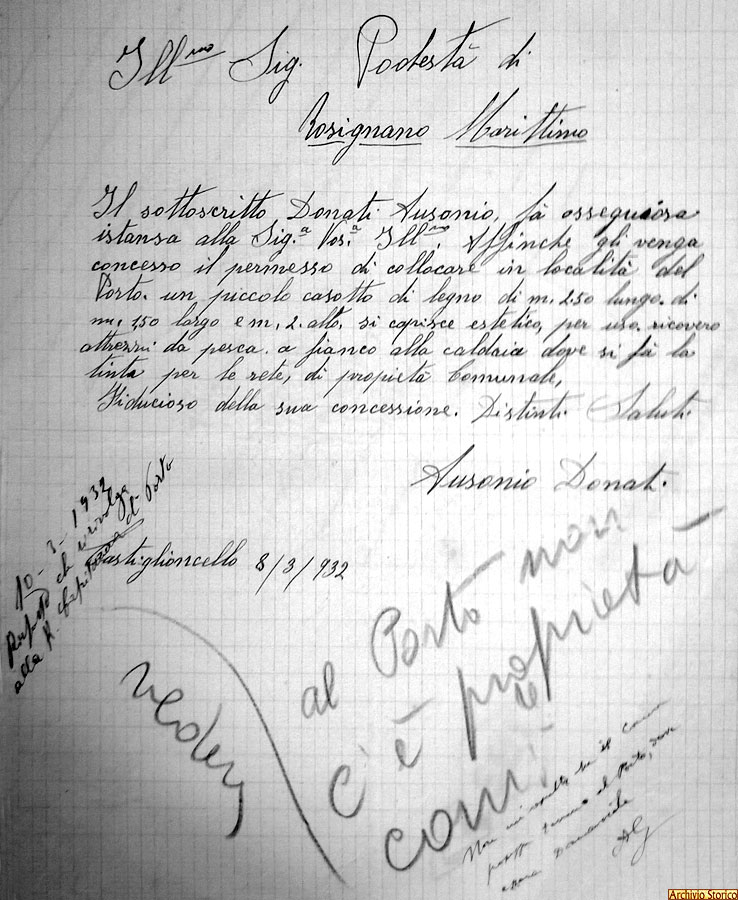 Ill.mo Sig. Podestà di
Rosignano Marittimo
Il sottoscritto Donati Ausonio, fà ossequiosa
istansa alla Sig.a Vos.a Ill.mo, Affinche gli venga
concesso il permesso di collocare in località del
Porto. un piccolo casotto di legno di m. 2.50 lungo. di
m. 1,50 largo e m, 2. alto. si capisce estetico, per uso. ricovero
attrezzi da pesca. a fianco alla caldaia dove si fà la
tinta per le rete, di propietà Comunale,
Fiducioso della sua concessione. Distinti Saluti
Ausonio Donati.
Castiglioncello 8/3/932
10-3-1932
Risposto che si rivolga
alla R. Capitaneria di Porto
al Porto non
c'è proprietà
com
Non mi risulta che il
al Porto,
AG
Archivio Storico